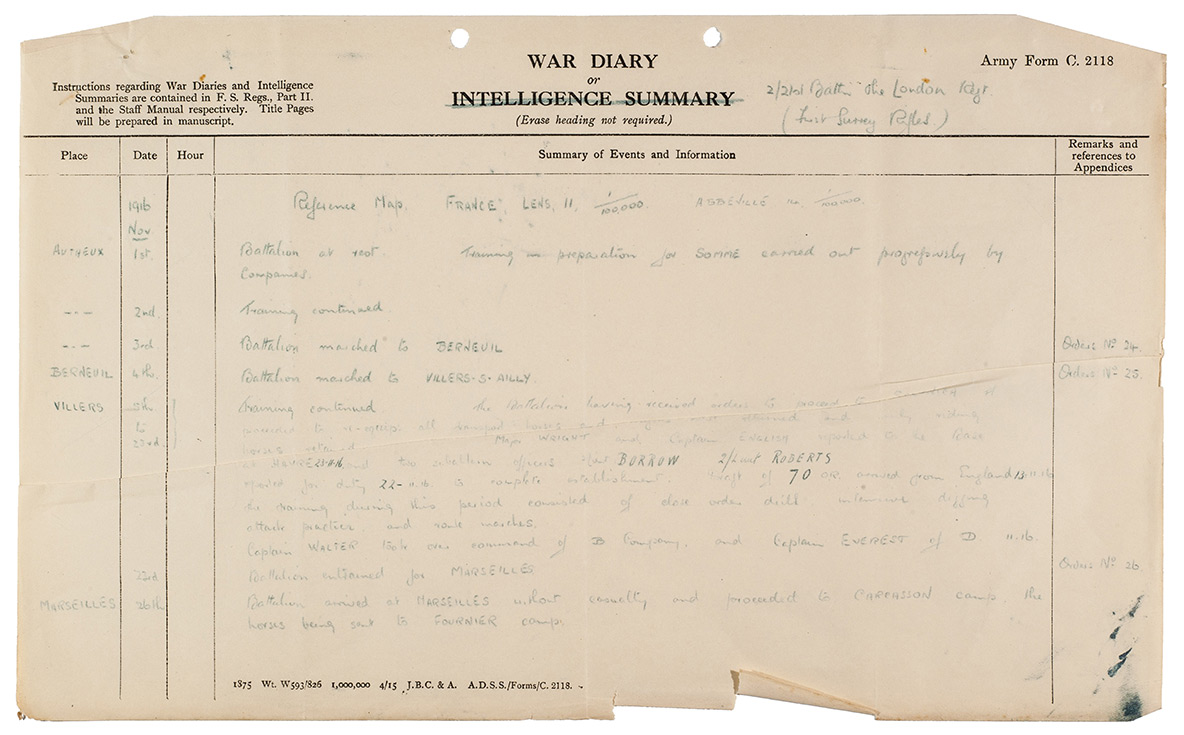 WAR DIARY
or
INTELLIGENCE SUMMARY
(Erase heading not required.)
Army Form C. 2118
Instructions regarding War Diaries and Intelligence
Summaries are contained in F. S. Regs., Part II.
and the Staff Manual respectively. Title Pages
will be prepared in manuscript.
2/21st Battn The London Rgt.
(First Surrey Rifles)
Place Date Hour Summary of Events and Information Remarks and
references to
Appendices
1916 Reference Map. FRANCE, LENS, 11, 1/100,000. ABBEVILLE 1/100,000.
Nov.
AUTHEUX 1st. Battalion at rest. Training preparation for SOMME carried out progressively by
Companies.
-"- 2nd. Training continued.
-"- 3rd. Battalion marched to BERNEUIL Orders No 24.
BERNEUIL 4th. Battalion marched to VILLERS-S-AILLY. Orders No 25.
VILLERS 5th Training continued. The Battalion having received orders to proceed to
to proceeded to re-equip all transport horses and and only riding
23rd horses retained. Major WRIGHT and Captain ENGLISH reported to the Base
at HAVRE 23-11-16 and two subaltern officers BURROW 2/Lieut ROBERTS
reported for duty 22-11-16 to complete establishment. Draft of 70 OR arrived from England 13-11-16
the training during this period consisted of close order drill intensive digging
attack practice and route marches.
Captain WALTER took over command of B Company, and Captain EVEREST of D. 11.16.
23rd Battalion entrained for MARSEILLES Orders No 26.
MARSEILLES 26th Battalion arrived at MARSEILLES without casualty and proceeded to CARCASSON camp, the
horses being sent to FOURNIER camp.
1875 Wt. W593/826 1,000,000 4/15 J.B.C. & A. A.D.S.S./Forms/C. 2118.